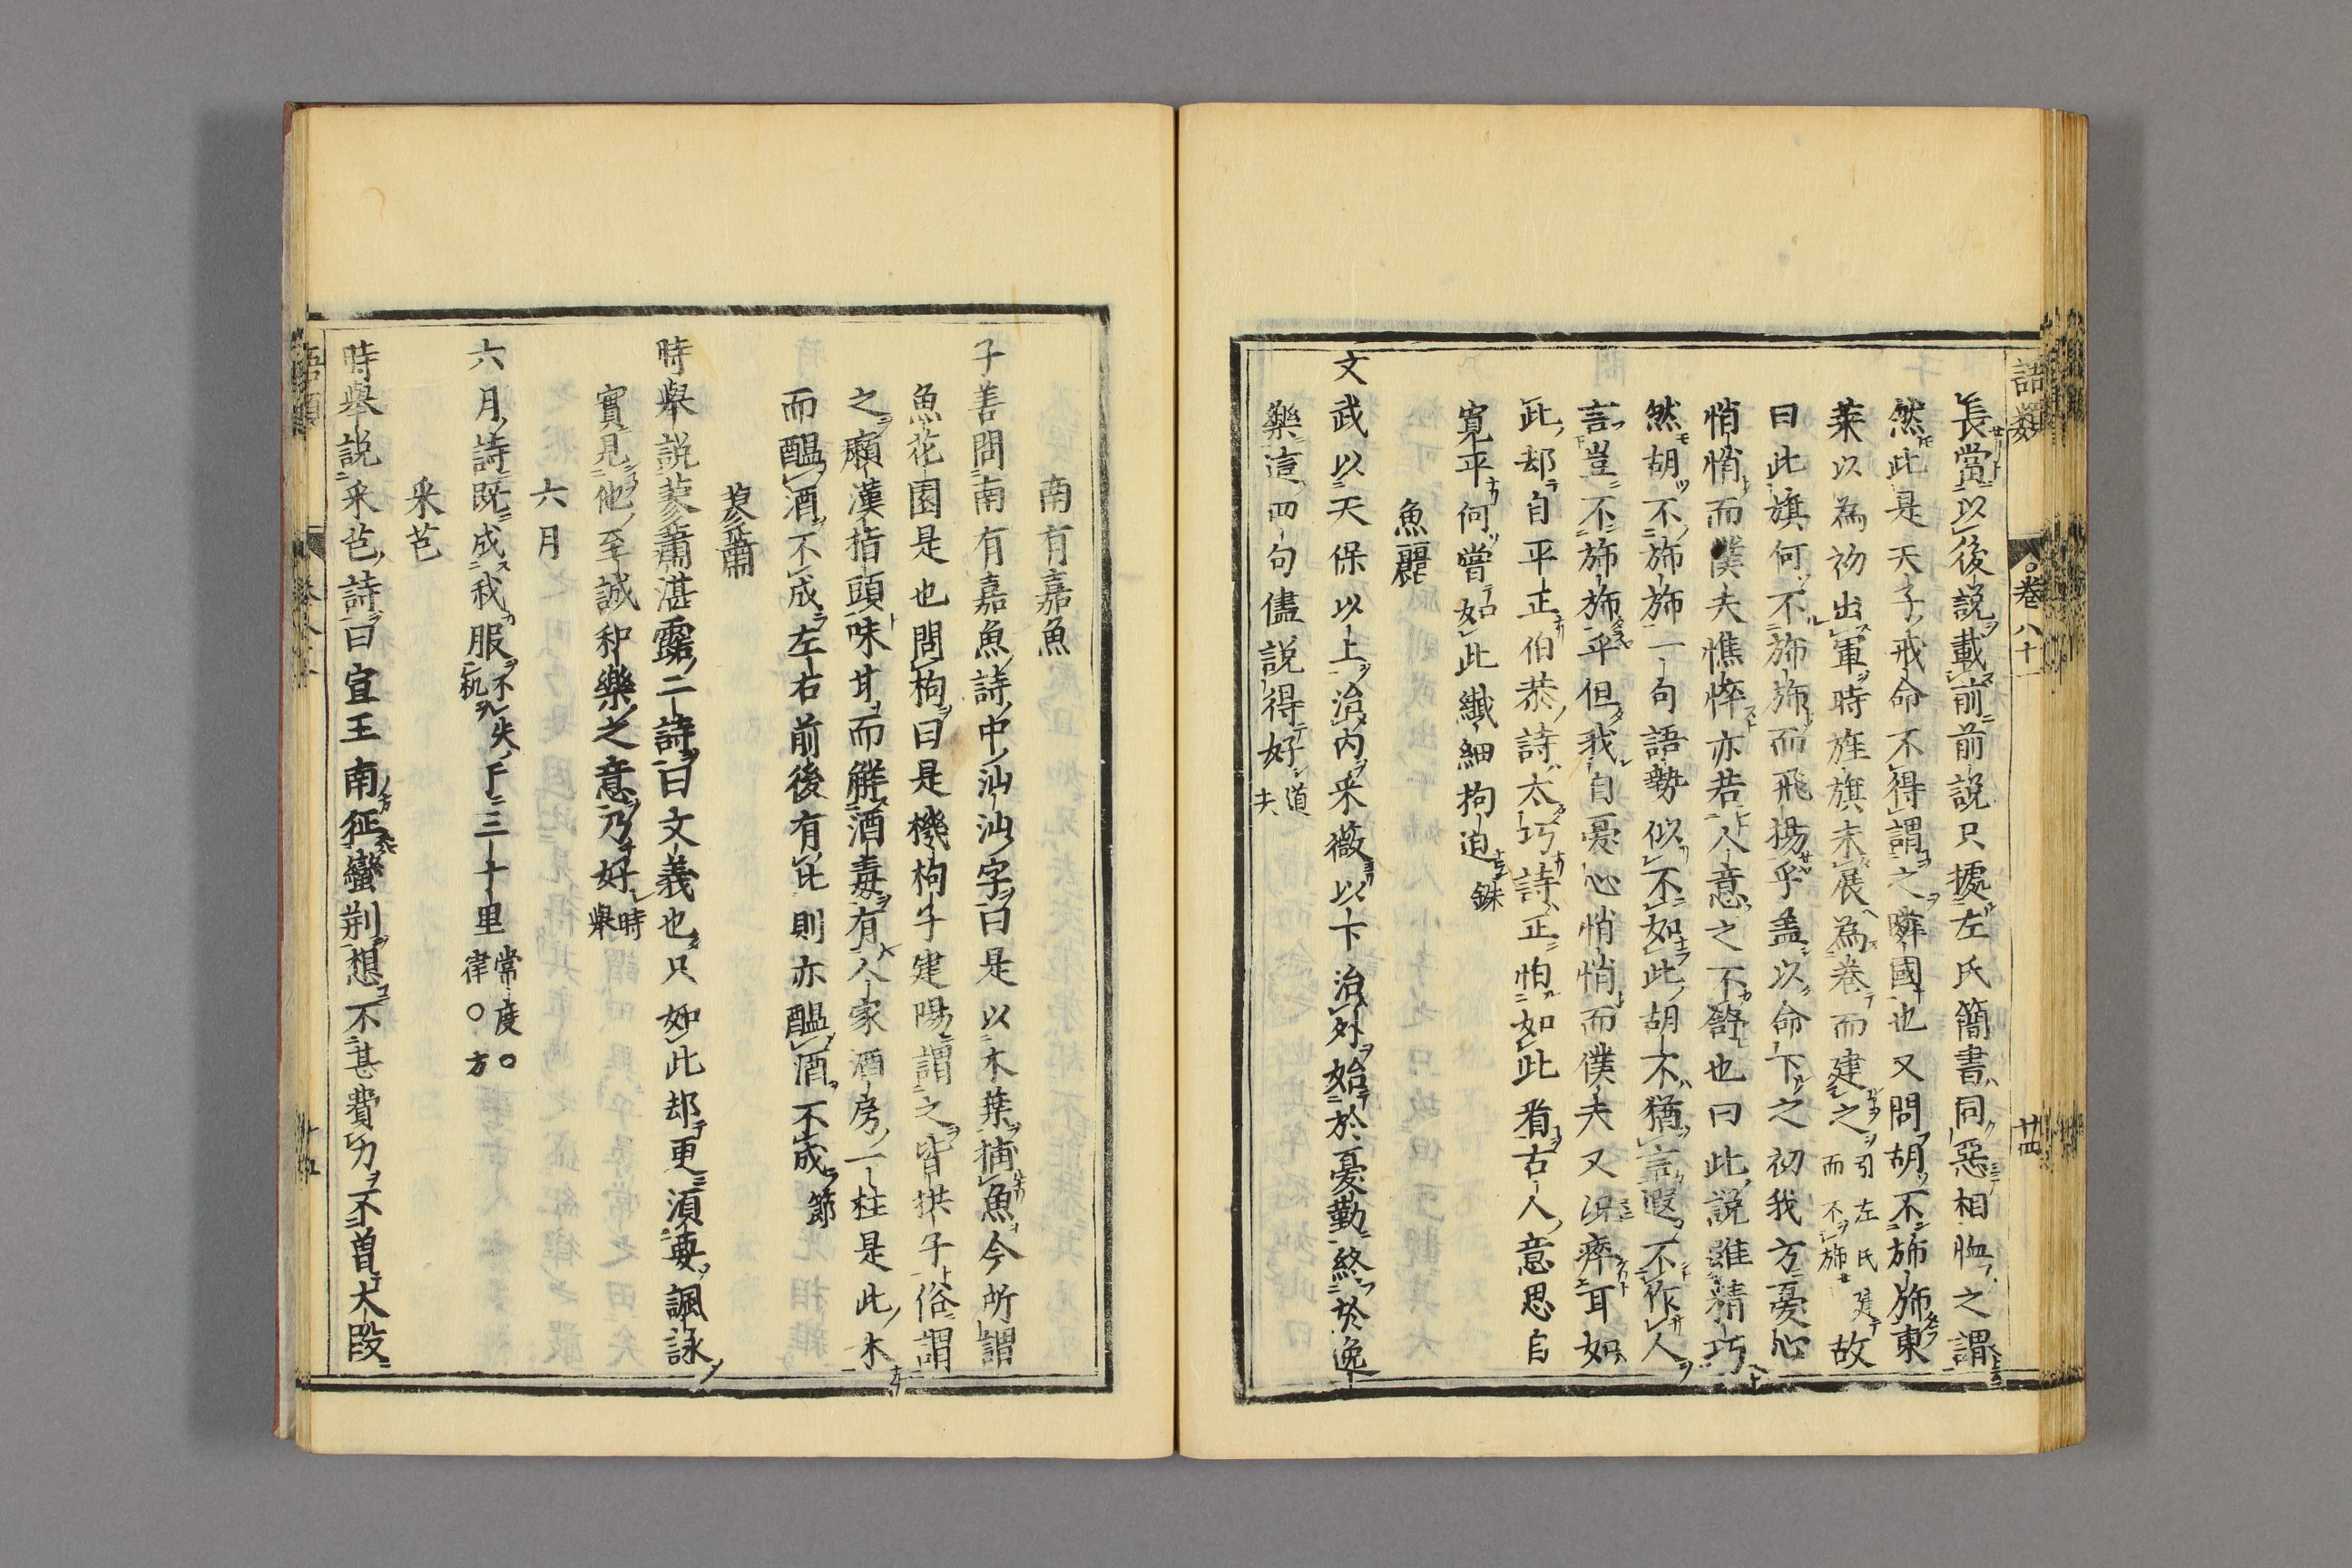 語類 卷八十一 廿四
長當以後說載前前說只據左氏簡書同惡相恤之謂
然此是天子戒命不得謂之鄰國也又問胡不旆旆東
萊以為初出軍時旌旗未展為卷而建之引左氏建而不旆故
曰此旗何不旆旆而飛揚乎蓋以命下之初我方憂心
悄悄而僕夫憔悴亦若人意之不舒也曰此說雖精巧
然胡不旆旆一句語勢似不如此胡不猶言遐不作人
言豈不旆旆乎但我自憂心悄悄而僕夫又況瘁耳如
此却自平正伯恭詩太巧詩正怕如此看古人意思自
寬平何嘗如此纖細拘迫銖
魚麗
文武以天保以上治內采薇以下治外始於憂勤終於逸
樂這四句儘說得好道夫
南有嘉魚
子善問南有嘉魚詩中汕汕字曰是以木葉捕魚今所謂
魚花園是也問枸曰是機枸子建陽謂之皆拱子俗謂
之癩漢指頭味甘而解酒毒有人家酒房一柱是此木
而醞酒不成左右前後有此則亦醞酒不成節
蓼蕭
時舉說蓼蕭湛露二詩曰文義也只如此却更須要諷詠
實見他至誠和樂之意乃好時舉
六月
六月詩既成我服不失機于三十里常度○律○方
采芑
時舉說采芑詩曰宣王南征蠻荊想不甚費力不曾大段